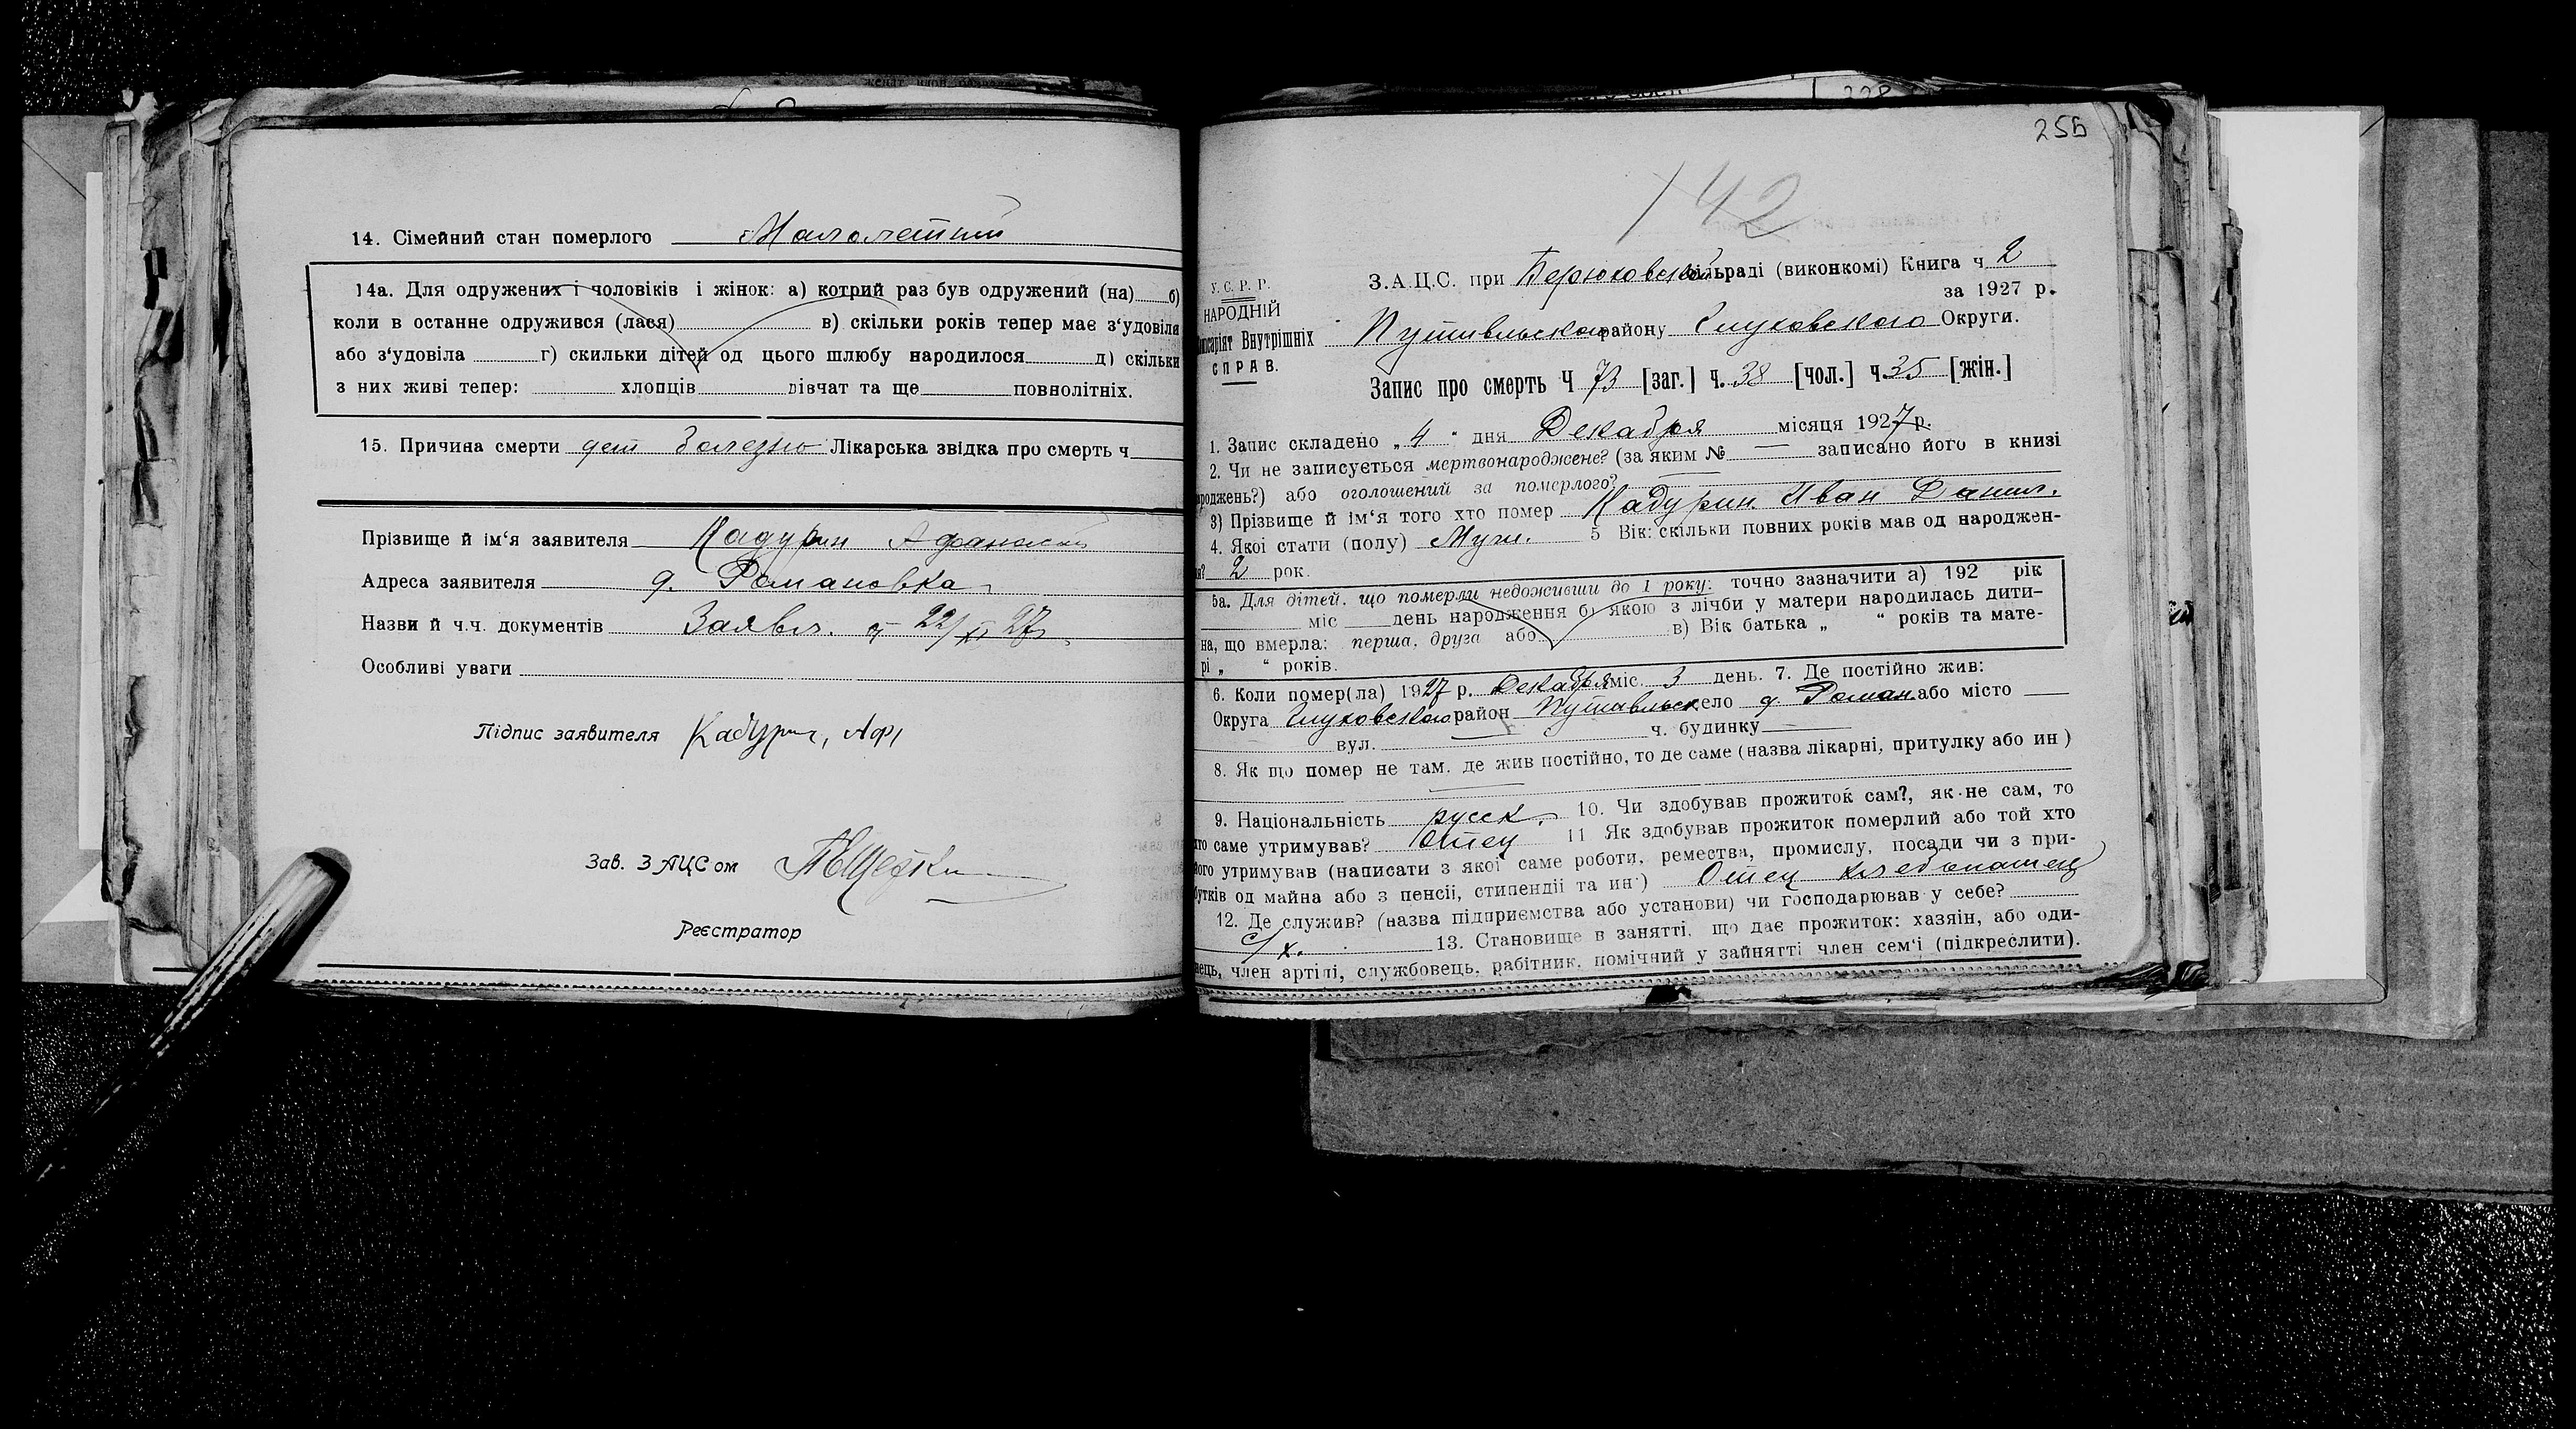 14. Сімейний стан померлого Малолетний
14а. Для одружених і чоловіків і жінок: а) котрий раз був одружений (на) б)
коли в останне одружився (лася) в) скільки років тепер має з‘удовіла
або з‘удовіла г) скильки дітей од цього шлюбу народилося д) скільки
з них живі тепер: хлопців дівчат та ще повнолітніх.
15. Причина смерти дет болезнь Лікарська звідка про смерть ч
Прізвище й ім‘я заявителя Кадурин Афанасий
Адреса заявителя д. Романовка
Назви й ч.ч. документів Заявл. от 22/XI 27
Особливі уваги
Підпис заявителя Кадурин, Аф
Зав. ЗАЦСом
Реєстратор
255
142
У.С.Р.Р.
НАРОДНІЙ
Внутрішніх
СПРАВ.
З.А.Ц.С. при Берюховской сільраді (виконкомі) Книга ч 2
за 1927 р.
Путивльского району Глуховского Округи.
Запис про смерть Ч 73 [заг.] ч. 38 [чол.] ч. 35 [жін.]
1. Запис складено „ 4 “ дня Декабря місяця 1927 р.
2. Чи не записується мертвонароджене? (за яким № — записано його в книзі
роджень?) або оголошений за померлого?
3) Прізвище й ім‘я того хто помер Кадурин Иван Данил.
4. Якої стати (полу) Муж. 5 Вік: скільки повних років мав од народжен-
2 рок.
5а. Для дітей, що померли недоживши до 1 року: точно зазначити а) 192 рік
міс день народження б) якою з лічби у матери народилась дити-
на, що вмерла: перша, друга або в) Вік батька „ “ років та мате-
рі „ “ років.
6. Коли помер(ла) 1927 р. Декабря міс. 3 день. 7. Де постійно жив:
Округа Глуховского район Путивльск село д. Роман. або місто —
вул. ч. будинку —
8. Як що помер не там, де жив постійно, то де саме (назва лікарні, притулку або ин )
9. Національність русск. 10. Чи здобував прожиток сам?, як не сам, то
хто саме утримував? Отец 11 Як здобував прожиток померлий або той хто
його утримував (написати з якої саме роботи, ремества, промислу, посади чи з при-
бутків од майна або з пенсії, стипендії та ин·) Отец хлебопашец
12. Де служив? (назва підприємства або установи) чи господарював у себе?
с/х. 13. Становище в занятті, що дає прожиток: хазяін, або оди-
нець, член артілі, службовець, рабітник, помічний у зайнятті член сем‘ї (підкреслити).